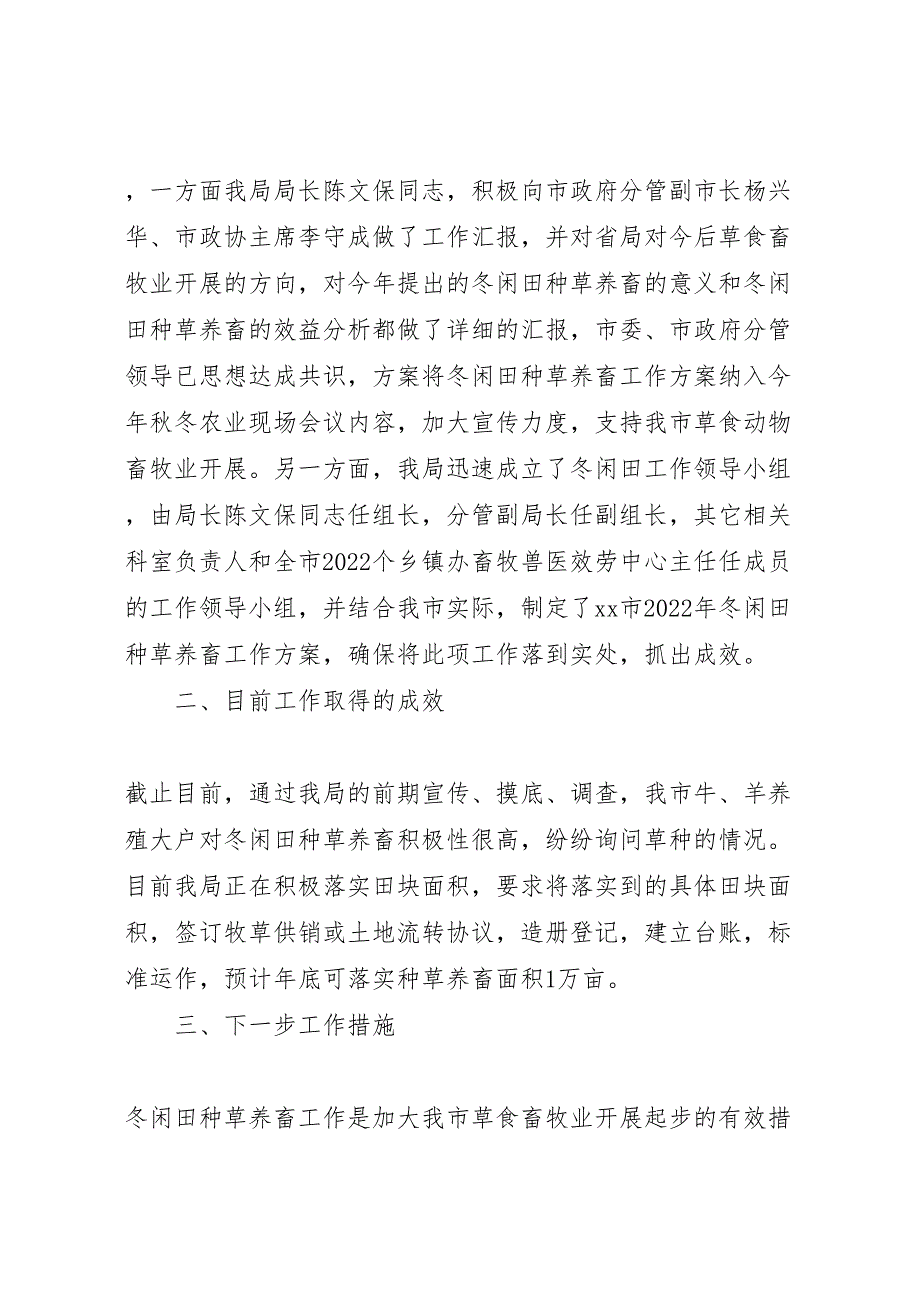 ，一方面我局局长陈文保同志，积极向市政府分管副市长杨兴
华、市政协主席李守成做了工作汇报，并对省局对今后草食畜
牧业开展的方向，对今年提出的冬闲田种草养畜的意义和冬闲
田种草养畜的效益分析都做了详细的汇报，市委、市政府分管
领导已思想达成共识，方案将冬闲田种草养畜工作方案纳入今
年秋冬农业现场会议内容，加大宣传力度，支持我市草食动物
畜牧业开展。另一方面，我局迅速成立了冬闲田工作领导小组
，由局长陈文保同志任组长，分管副局长任副组长，其它相关
科室负责人和全市2022个乡镇办畜牧兽医效劳中心主任任成员
的工作领导小组，并结合我市实际，制定了xx市2022年冬闲田
种草养畜工作方案，确保将此项工作落到实处，抓出成效。
二、目前工作取得的成效
截止目前，通过我局的前期宣传、摸底、调查，我市牛、羊养
殖大户对冬闲田种草养畜积极性很高，纷纷询问草种的情况。
目前我局正在积极落实田块面积，要求将落实到的具体田块面
积，签订牧草供销或土地流转协议，造册登记，建立台账，标
准运作，预计年底可落实种草养畜面积1万亩。
三、下一步工作措施
冬闲田种草养畜工作是加大我市草食畜牧业开展起步的有效措